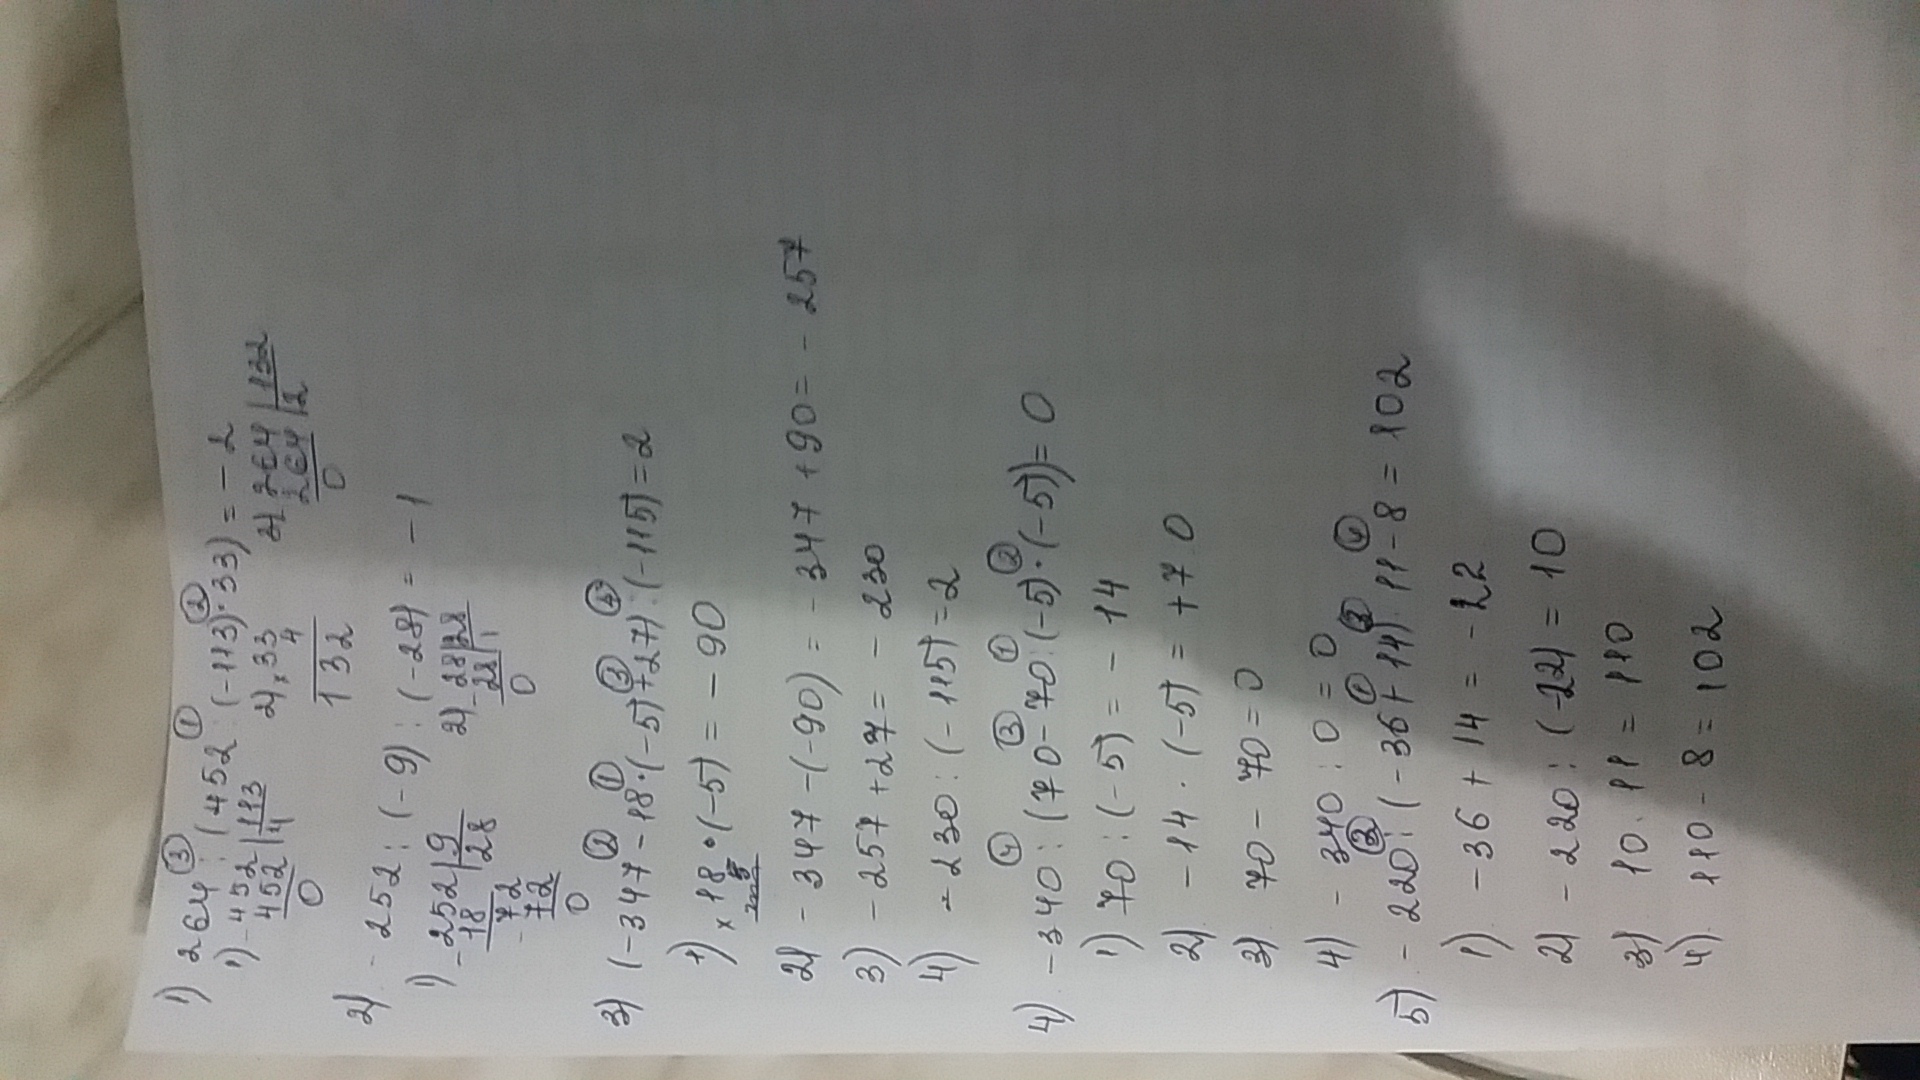 1) 264 : (452 : (-113) · 33) = - 2
③ ① ②
1) - 452 | 113 2) × 33 3) 264 | 132
452 | 4 4 264 | 2
0 132 0
2) - 252 : (-9) : (-28) = - 1
1) - 252 | 9 2) - 28 | 28
18 | 28 28 | 1
- 72 0
72
0
3) (-347 - 18 · (-5) + 27) : (-115) = 2
② ① ③ ④
1) × 18 · (-5) = - 90
5
2) - 347 - (-90) = - 347 + 90 = - 257
3) - 257 + 27 = - 230
4) - 230 : (-115) = 2
4) - 340 : (70 - 70 : (-5) · (-5)) = 0
④ ③ ① ②
1) 70 : (-5) = - 14
2) - 14 · (-5) = + 70
3) 70 - 70 = 0
4) - 340 : 0 = 0
5) - 220 : (-36 + 14) · 11 - 8 = 102
② ① ③ ④
1) - 36 + 14 = - 22
2) - 220 : (-22) = 10
3) 10 · 11 = 110
4) 110 - 8 = 102